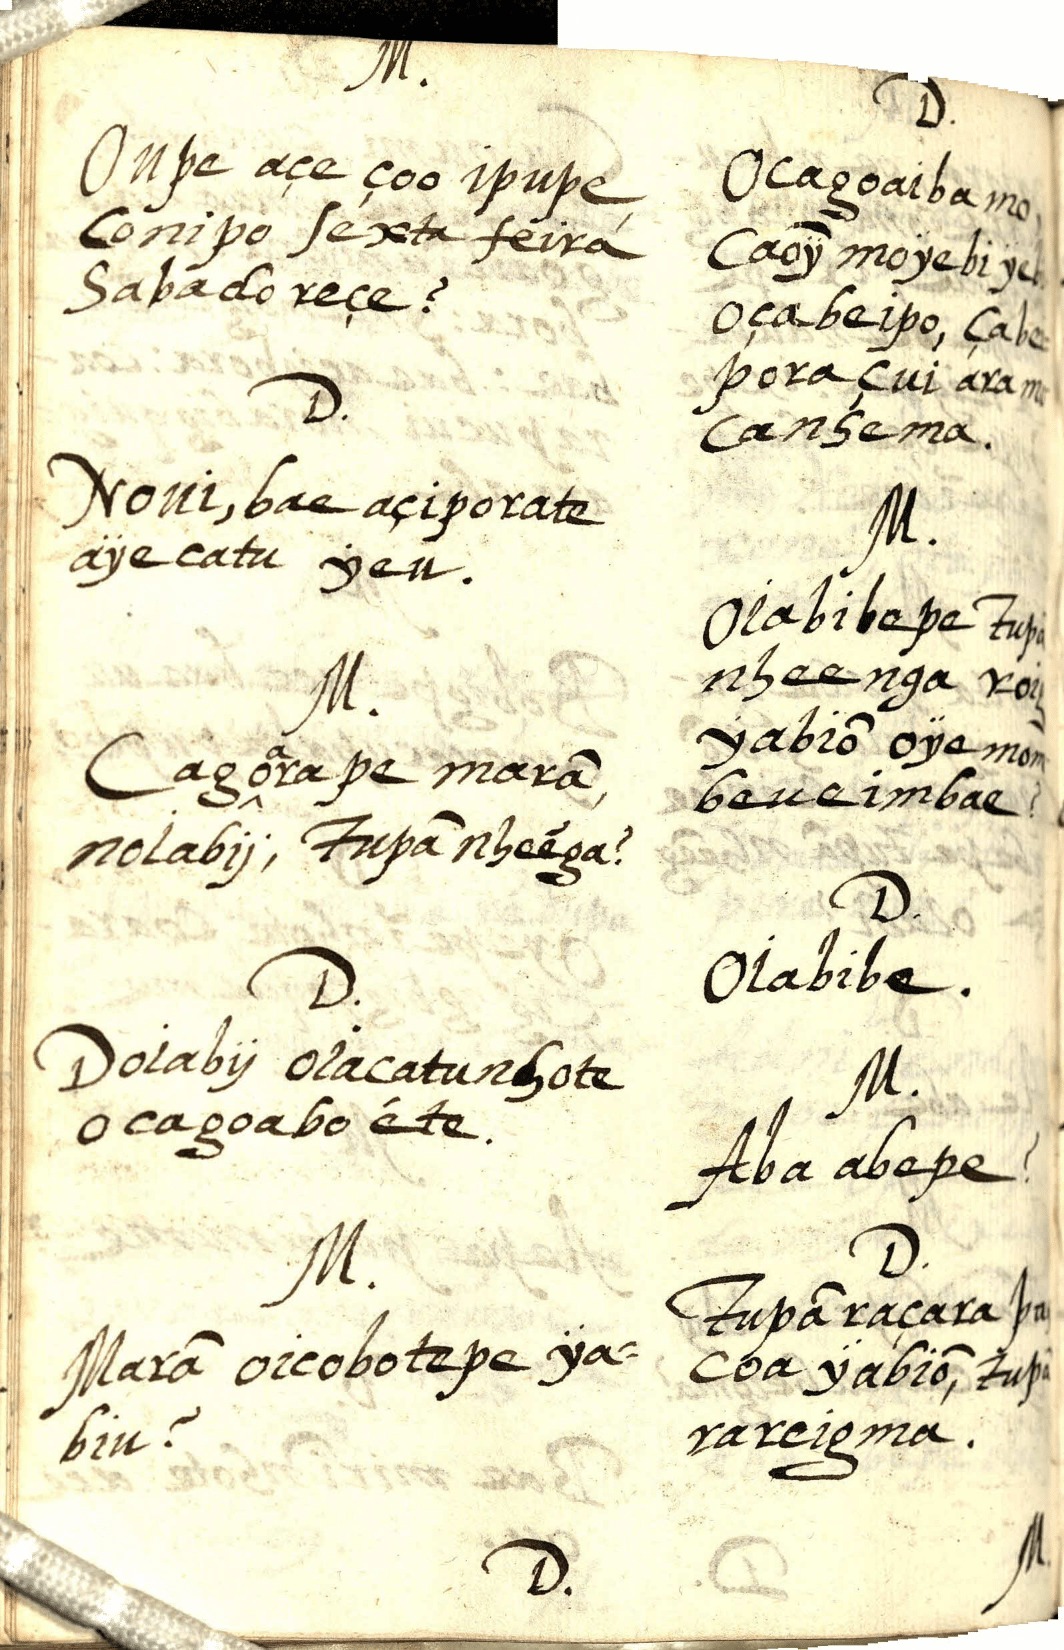 M.
Oupe açe çoo ipupe,
Conipo sexta feira
Sabado reçe?
D.
Noui, bae açiporate
aÿe catu ÿeu.
M.
Cagoara pe marã,
noiabij, Tupã nheẽga?
D.
Doiabij oiacatunhote
ocagoabo éte.
M.
Marã oicobotepe ÿa=
biu?
D.
D.
Ocagoaiba mo
Caoÿ moÿebi
oçabeipo,
pora çui
canhema.
M.
Oiabibepe
nheenga
ÿabiõ
beueimbae?
D.
Oiabibe.
M.
Aba abepe?
D.
Tupã raçara
coa ÿabiõ,
rareigma.
M.